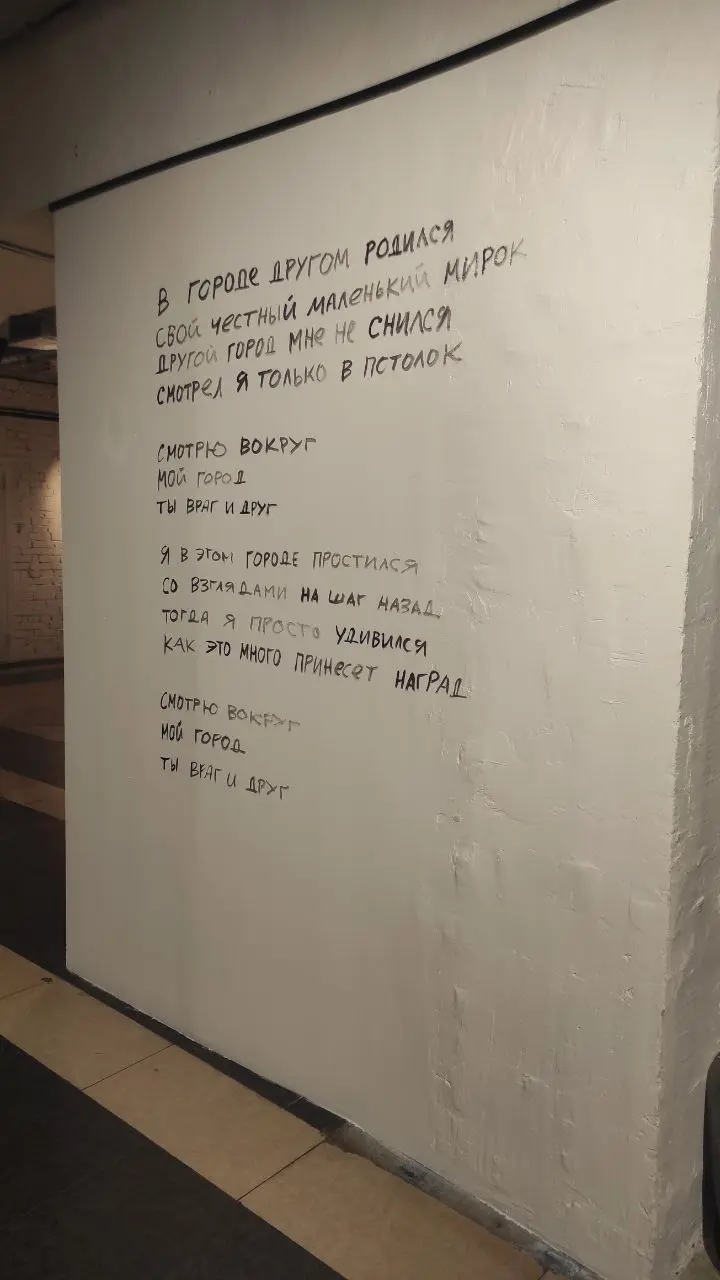 В ГОРОДЕ ДРУГОМ РОДИЛСЯ
СВОЙ ЧЕСТНЫЙ МАЛЕНЬКИЙ МИРОК
ДРУГОЙ ГОРОД МНЕ НЕ СНИЛСЯ
СМОТРЕЛ Я ТОЛЬКО В ПСТОЛОК
СМОТРЮ ВОКРУГ
МОЙ ГОРОД
ТЫ ВРАГ И ДРУГ
Я В ЭТОМ ГОРОДЕ ПРОСТИЛСЯ
СО ВЗГЛЯДАМИ НА ШАГ НАЗАД
ТОГДА Я ПРОСТО УДИВИЛСЯ
КАК ЭТО МНОГО ПРИНЕСЕТ НАГРАД
СМОТРЮ ВОКРУГ
МОЙ ГОРОД
ТЫ ВРАГ И ДРУГ